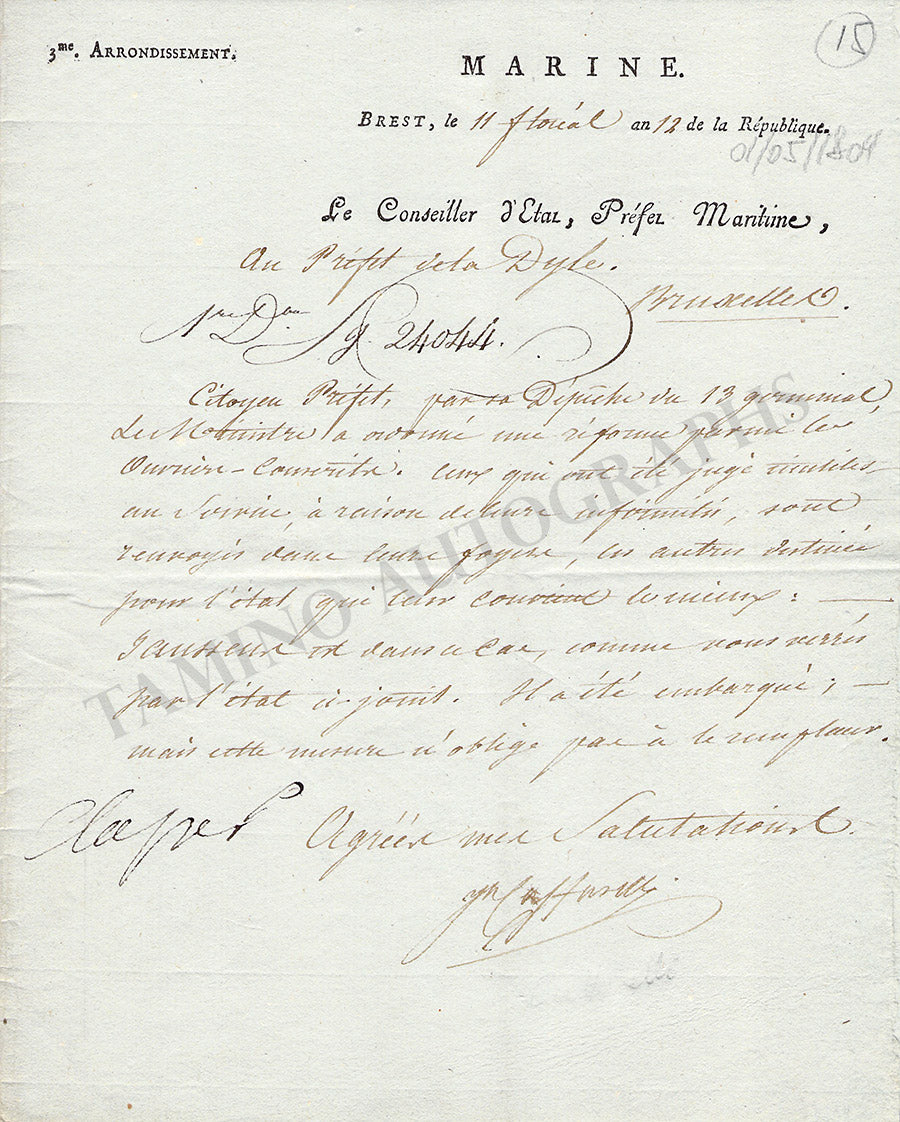 3me. ARRONDISSEMENT.
15
MARINE.
BREST, le 11 floréal an 12 de la République.
01/05/1804
Le Conseiller d'Etat, Préfet Maritime,
Au Préfet de la Dyle.
Bruxelles.
1re Don g. 24044.
Citoyen Préfet, par sa Dépêche du 13 germinal,
Le Ministre a ordonné une réforme parmi les
Ouvriers-Conscrits. Ceux qui ont été jugés inutiles
au Service, à raison de leurs infirmités, sont
renvoyés dans leurs foyers, les autres destinés
pour l'état qui leur convient le mieux : —
Janssens est dans ce cas, comme vous verrés
par l'état ci-joint. Il a été embarqué ; —
mais cette mesure n'oblige pas à le remplacer.
Agréés mes Salutations
Jh Caffarelli
TAMINO AUTOGRAPHS